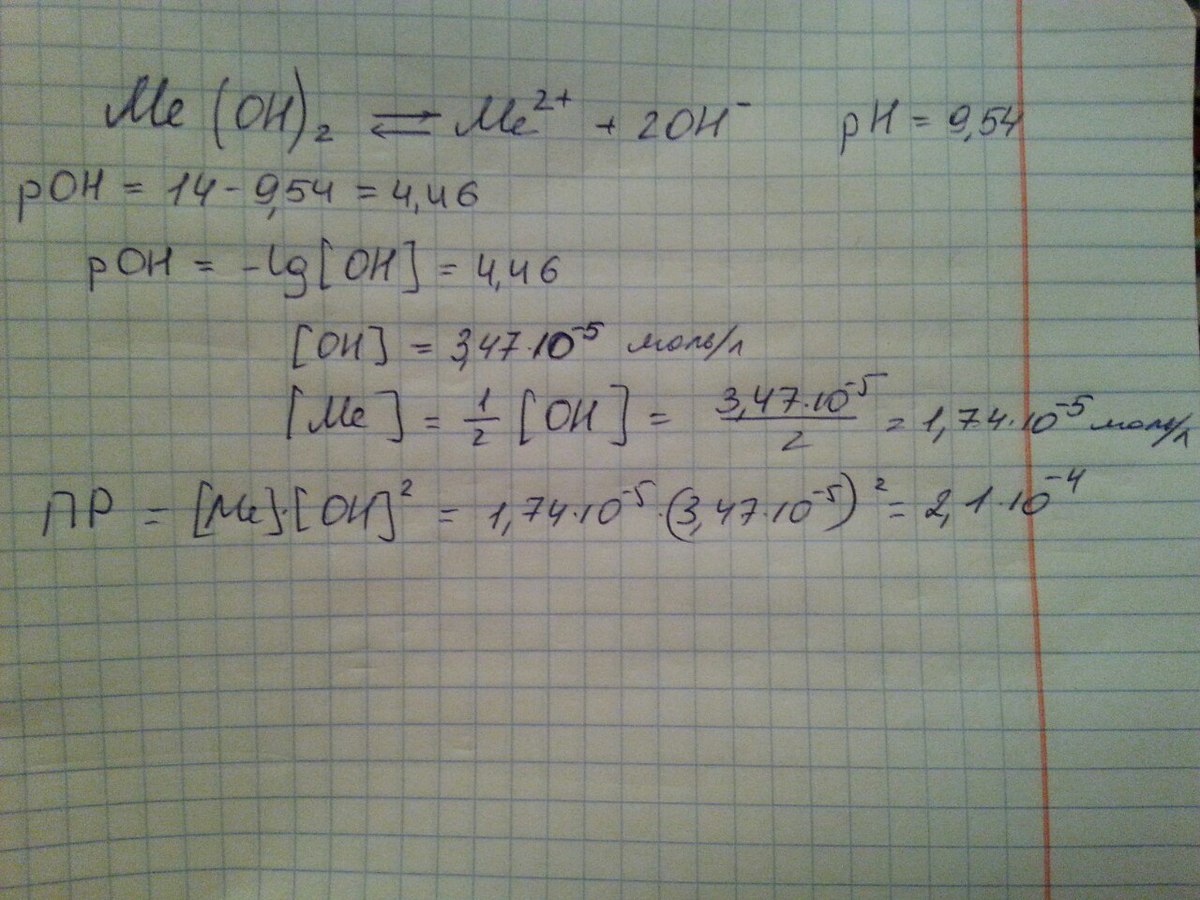 Me(OH)₂ ⇌ Me²⁺ + 2OH⁻ pH = 9,54
pOH = 14 - 9,54 = 4,46
pOH = -lg[OH] = 4,46
[OH] = 3,47·10⁻⁵ моль/л
[Me] = 1/2 [OH] = 3,47·10⁻⁵/2 = 1,74·10⁻⁵ моль/л
ПР = [Me]·[OH]² = 1,74·10⁻⁵·(3,47·10⁻⁵)² = 2,1·10⁻⁴